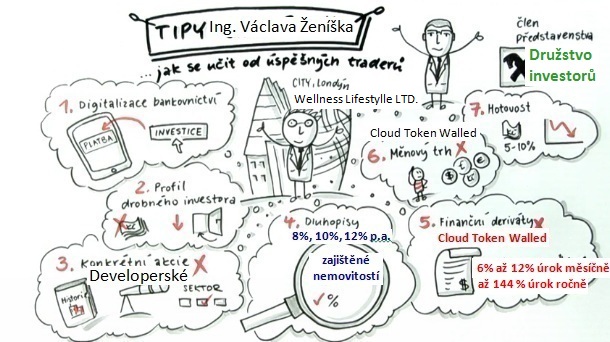 TIPY Ing. Václava Ženíška
...jak se učit od úspěšných traderů
člen
představenstva
Družstvo
investorů
CITY, Londýn
Wellness Lifestylle LTD.
1. Digitalizace bankovnictví
PLATBA
INVESTICE
2. Profil
drobného investora
Kč
3. Konkrétní akcie X
Developerské
Historie
SEKTOR
4. Dluhopisy
8%, 10%, 12% p.a.
zajištěné
nemovitostí
%
5. Finanční deriváty x
Cloud Token Walled
6% až 12% úrok měsíčně
až 144 % úrok ročně
$
Cloud Token Walled
6. Měnový trh X
£
€
$
7. Hotovost
Kč
5-10%